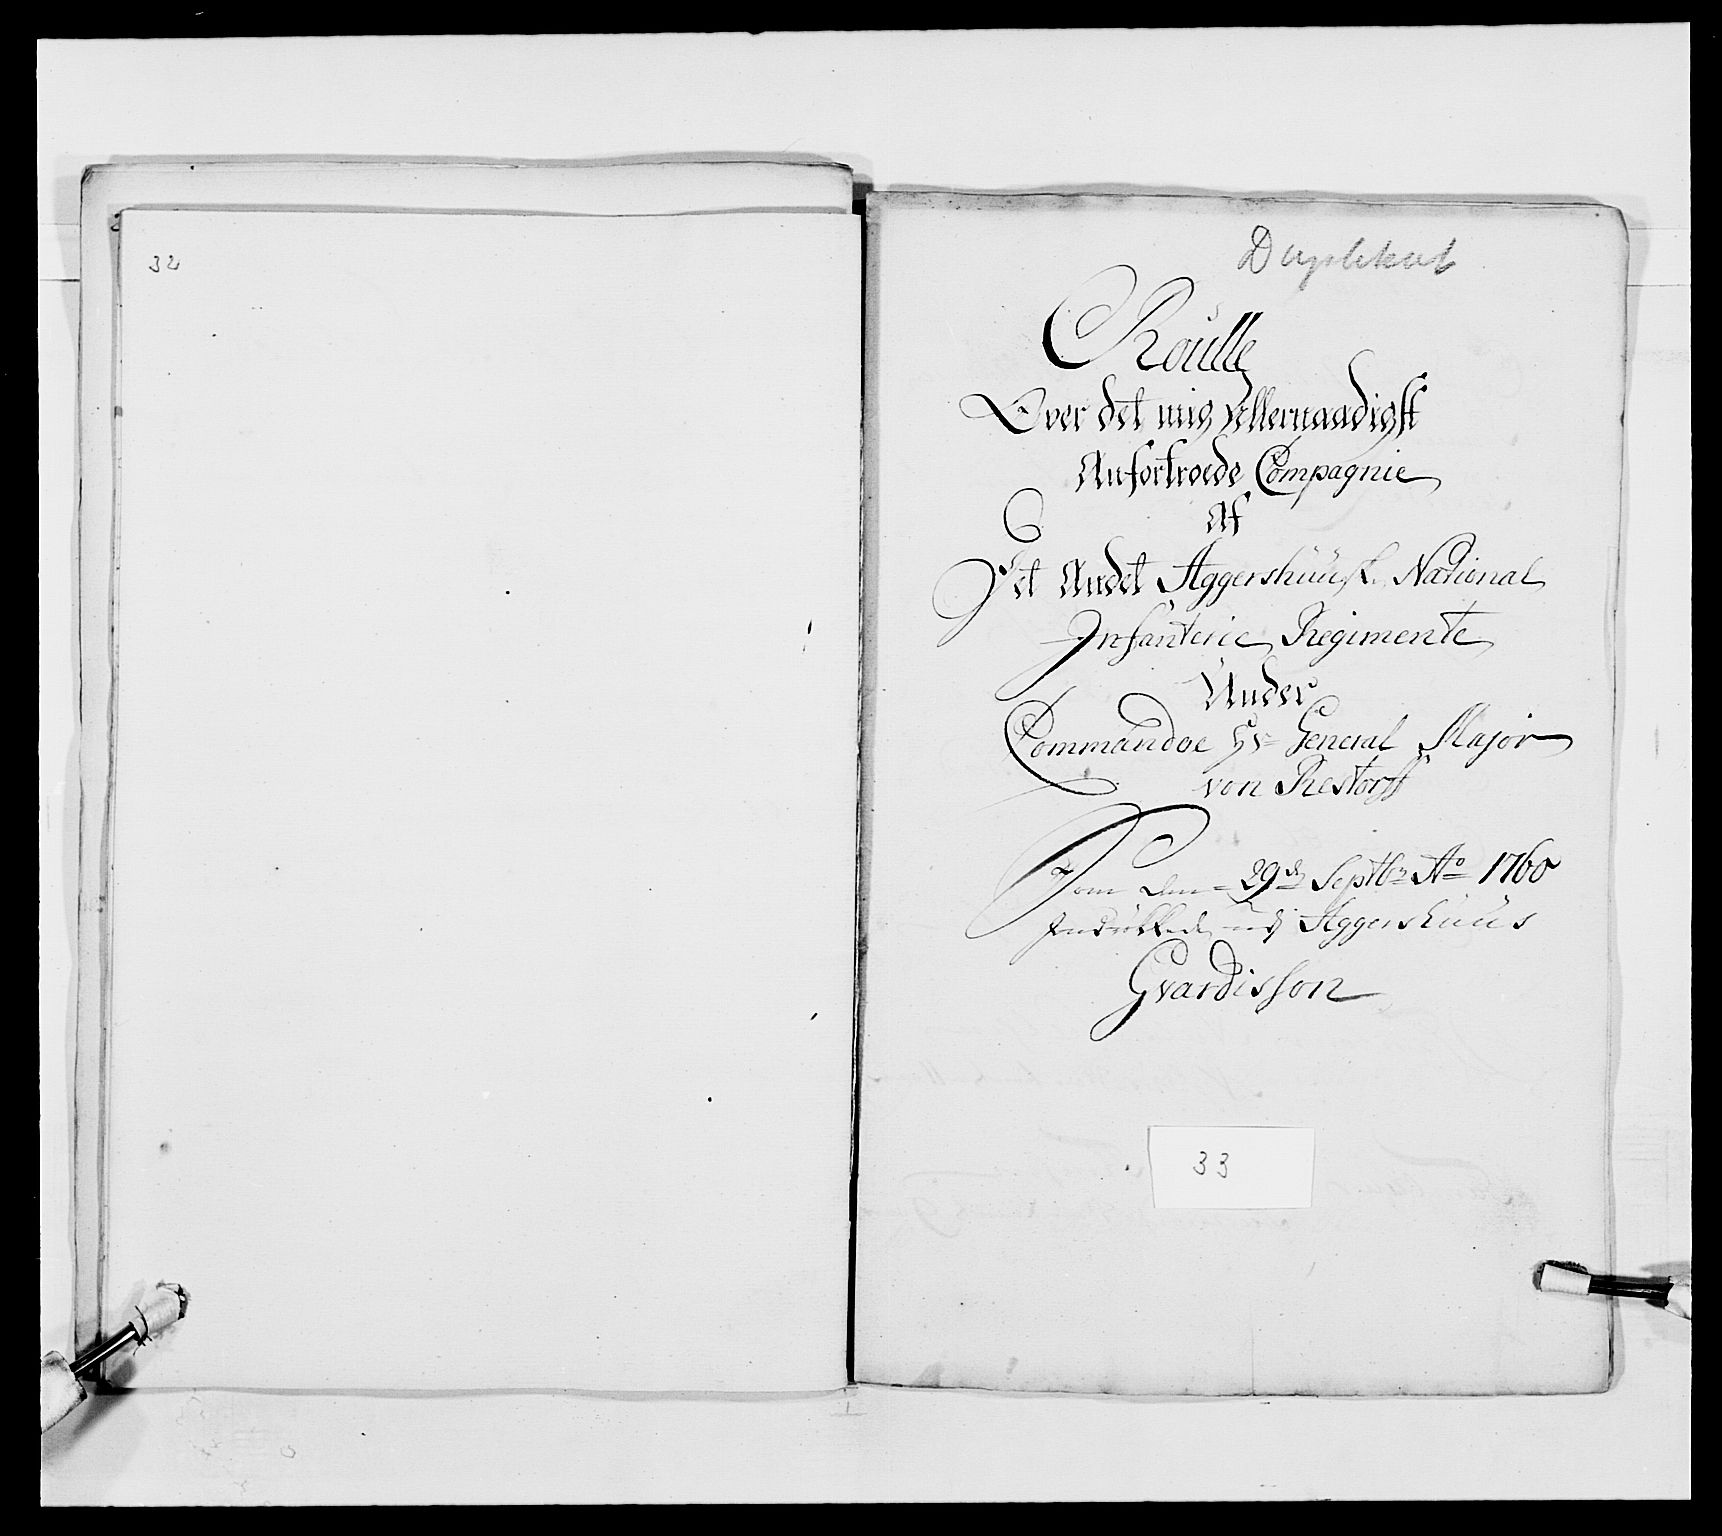 32
Duplikat
Roulle
Over det mig Allernaadigst
Anfortroede Compagnie
Af
Det Andet Aggershuusk. National
Infanterie Regimente
Under
Commandoe Hr General Major
von Restorff
Som den 29de Septbr Ao 1760
Indrökkede udj Aggershuus
Gvardisson
33